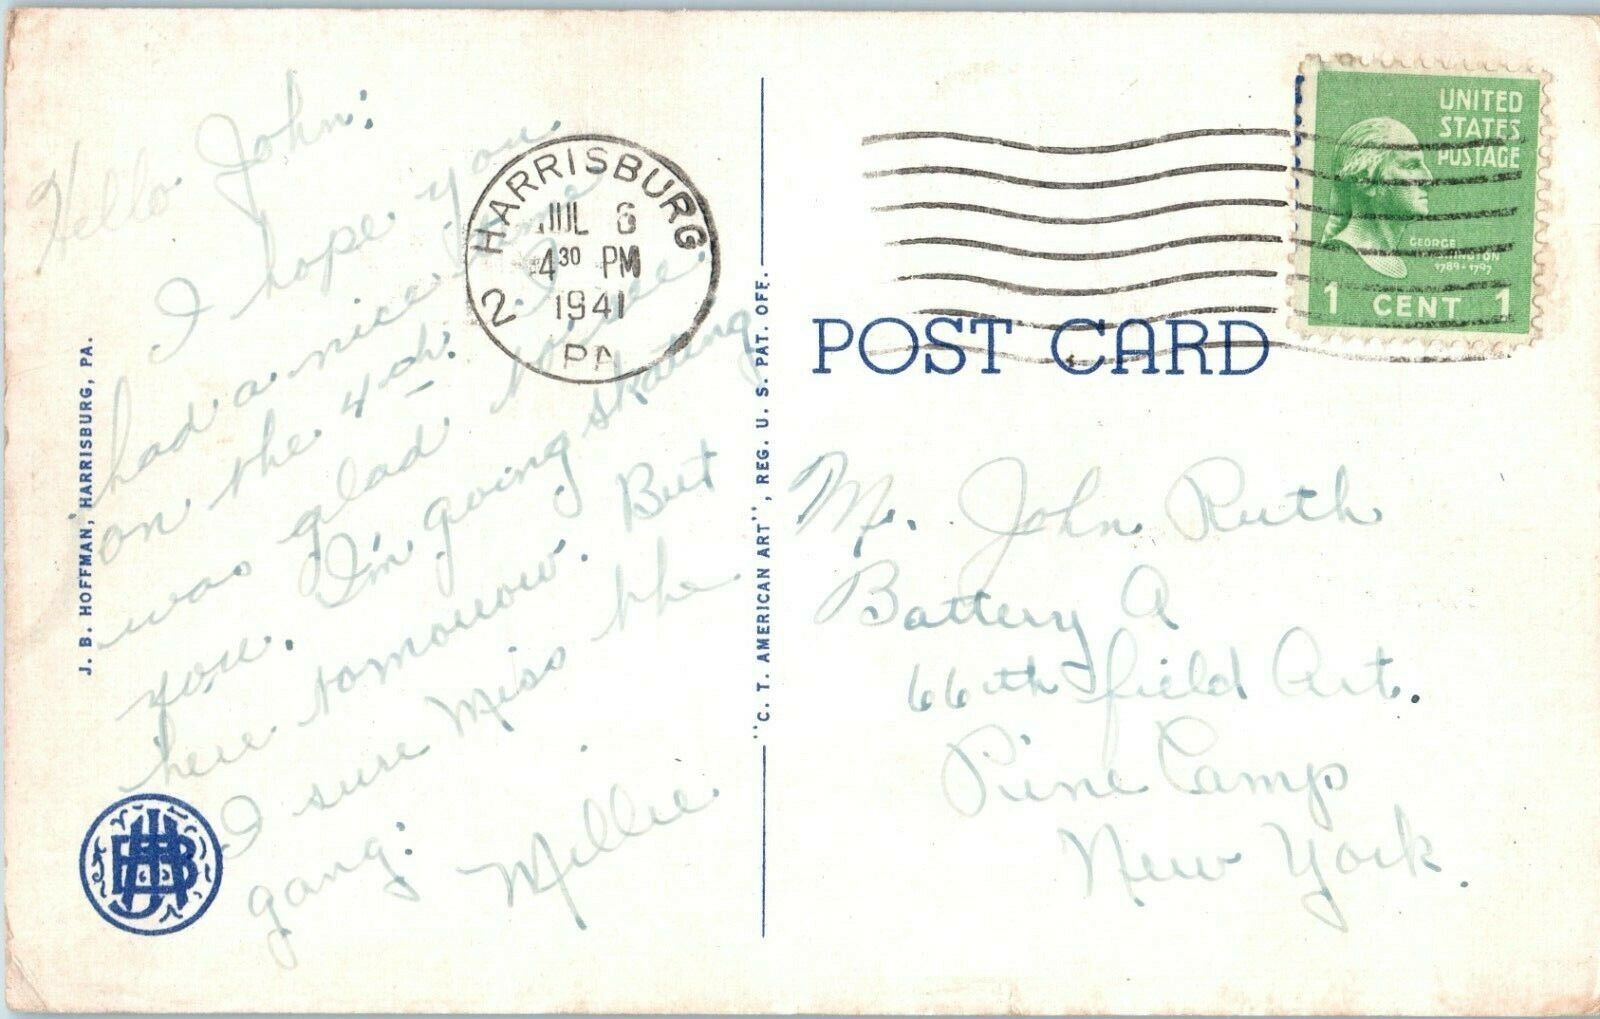 Hello John:
I hope you
had a nice time
on the 4th. I
was glad to see
you. I'm going skating
here tomorrow. But
I sure miss the
gang.
Millie
J. B. HOFFMAN, HARRISBURG, PA.
HARRISBURG
JUL 6
4 30 PM
1941
2
PA
"C. T. AMERICAN ART", REG. U. S. PAT. OFF.
UNITED
STATES
POSTAGE
GEORGE
WASHINGTON
1789-1797
1 CENT 1
POST CARD
Mr. John Ruth
Battery A
66th Field Art.
Pine Camp
New York.